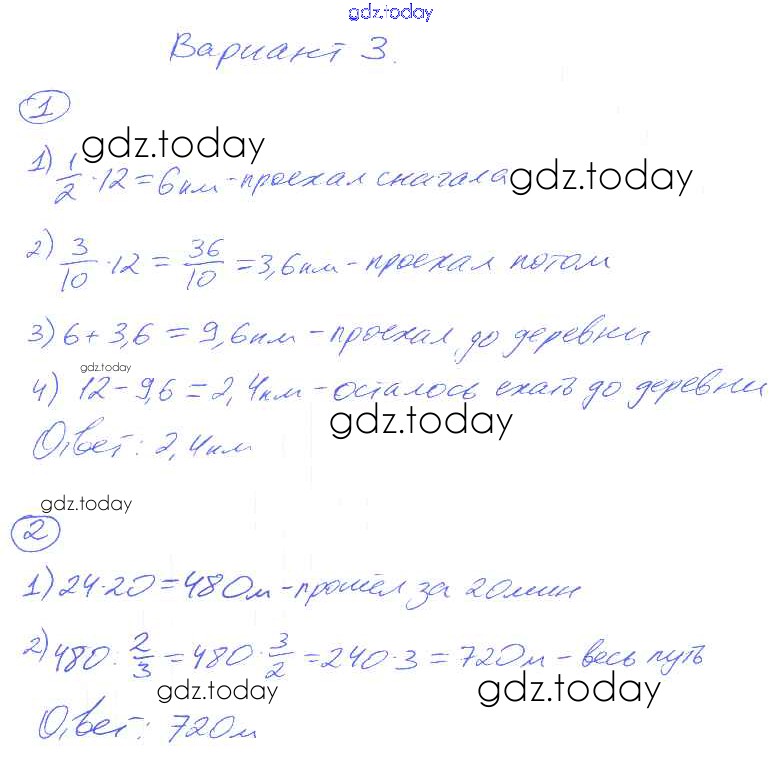 gdz.today
Вариант 3.
1
gdz.today
1) 1/2 · 12 = 6км - проехал сначала gdz.today
2) 3/10 · 12 = 36/10 = 3,6км - проехал потом
3) 6 + 3,6 = 9,6км - проехал до деревни
gdz.today
4) 12 - 9,6 = 2,4км - осталось ехать до деревни
gdz.today
Ответ: 2,4км
gdz.today
2
1) 24 · 20 = 480м - прошёл за 20мин
2) 480 : 2/3 = 480 · 3/2 = 240 · 3 = 720м - весь путь
gdz.today gdz.today
Ответ: 720м